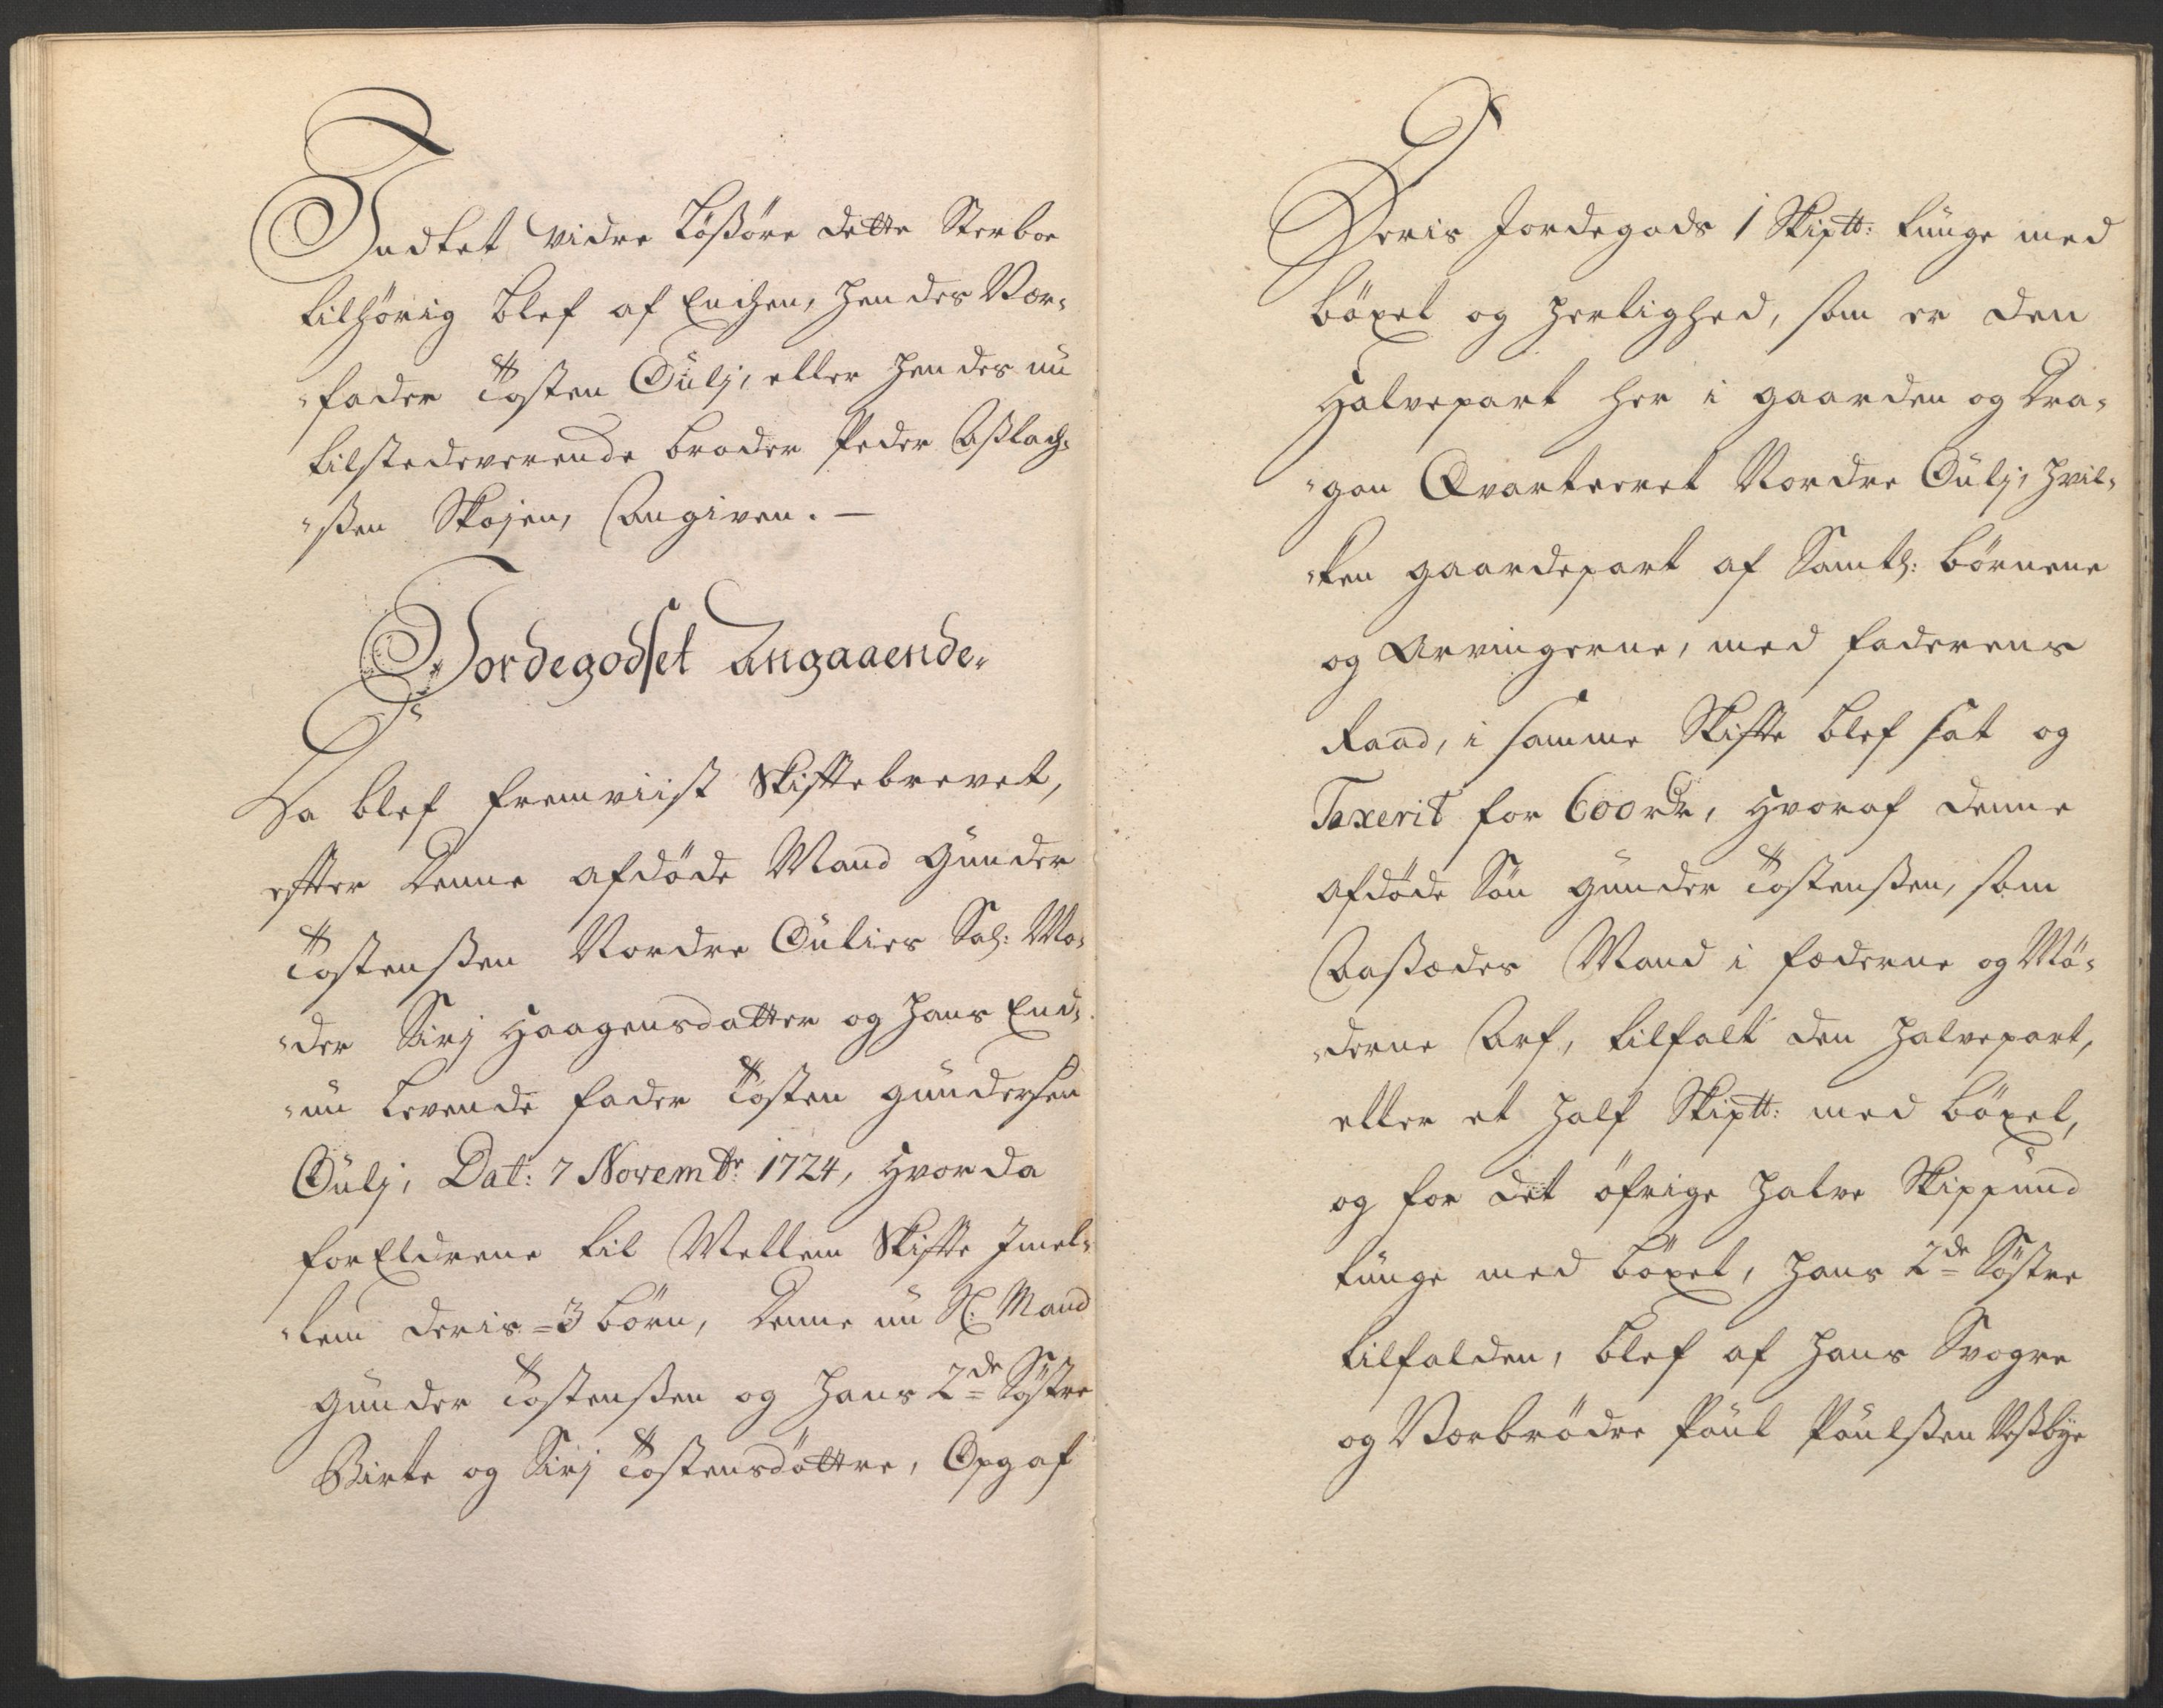 Indtet vidre Lößöre dette Sterboe
tilhörig blef af Enchen, hendes Vær-
"fader Tosten Gulj, eller hendes nu
tilstedeverende broder Peder Aßlach-
"ßen Skojen, Angiven. —
Jordegodset Angaaende.
Da blef fremviist Skiftebrevet,
efter denne afdöde Mand Gunder
Tostenßen Nordre Gulies Sal: Mo-
"der Sirj Haagensdatter og hans End-
"nu levende fader Tosten Gundersen
Gulj, Dat: 7 Novembr: 1724, hvorda
forEldrene til Mellem Skifte Imel-
"lem deris =3 börn, denne nu Sl. Mand
Gunder Tostenßen og hans 2de Söstre
Birte og Sirj Tostensdöttre, Opgaf
Deris Jordegods 1 Skiptt: tunge med
böxel og herlighed, som er den
halvepart her i gaarden og Dra-
"gon Qvarteeret Nordre Gulj, hvil-
"ken gaardepart af Samtl: börnene
og Arvingerne, med faderens
Raad, i samme Skifte blef sat og
Taxerit for 600 rdr, hvoraf denne
afdöde Sön Gunder Tostenßen, som
Aaßædes Mand i fæderne og Mö-
"derne Arf, tilfalt den halvepart,
eller et half Skiptt: med böxel,
og for det öfrige halve Skippund
tunge med böxel, hans 2de Söstre
tilfalden, blef af hans Svogre
og Værbrödre Poul Poulßen Veßbye